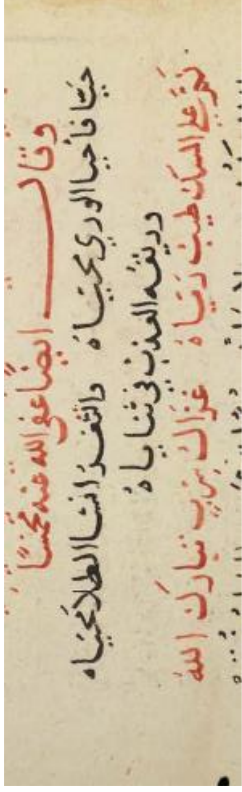 وقال ايضا عفى الله عنه مخمسا
حيا فاحيا الوري بمحياه والثغر انشا الطلا بحمياه
وريقه العذب في ثناياه
علي المسك طيب رياه غزال سرب تبارك الله